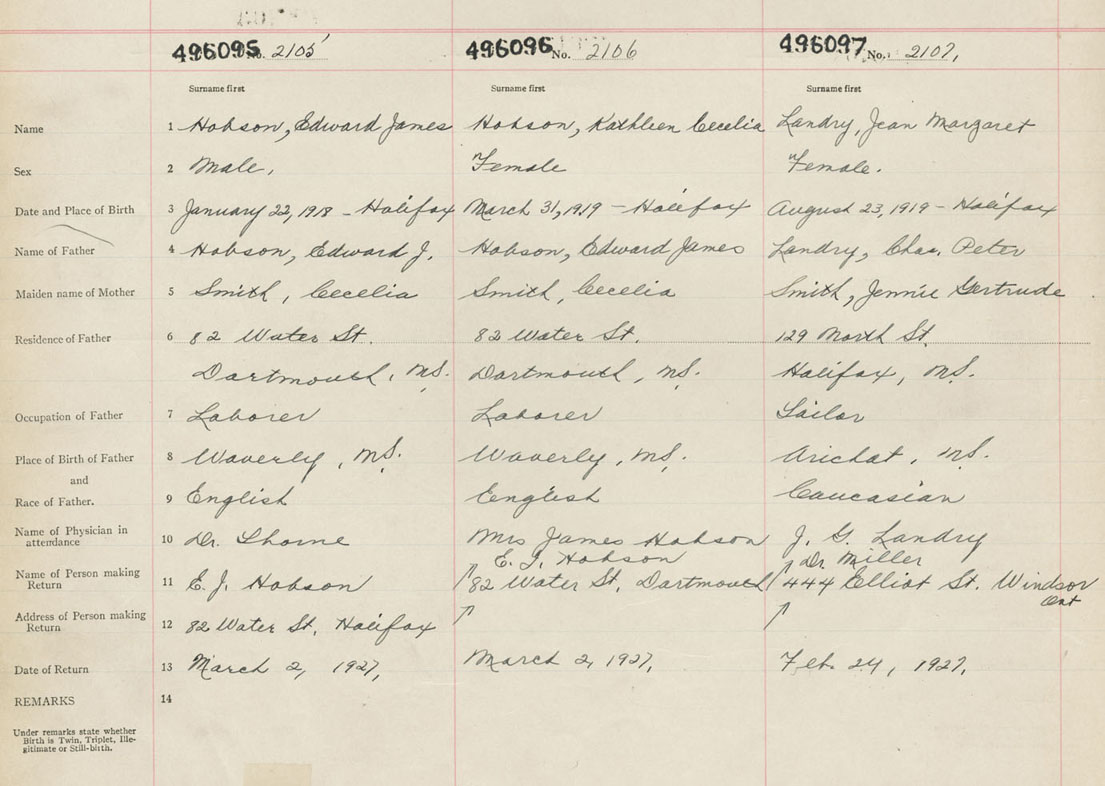 496095 No. 2105 496096 No. 2106 496097 No. 2107,
Surname first Surname first Surname first
Name 1 Hobson, Edward James Hobson, Kathleen Cecelia Landry, Jean Margaret
Sex 2 Male, Female Female.
Date and Place of Birth 3 January 22, 1918 - Halifax March 31, 1919 - Halifax August 23, 1919 - Halifax
Name of Father 4 Hobson, Edward J. Hobson, Edward James Landry, Chas. Peter
Maiden name of Mother 5 Smith, Cecelia Smith, Cecelia Smith, Jennie Gertrude
Residence of Father 6 82 Water St. 82 Water St. 129 North St.
Dartmouth, N.S. Dartmouth, N.S. Halifax, N.S.
Occupation of Father 7 Laborer Laborer Sailor
Place of Birth of Father 8 Waverly, N.S. Waverly, N.S. Arichat, N.S.
and
Race of Father. 9 English English Caucasian
Name of Physician in
attendance 10 Dr. Thorne Mrs James Hobson J. G. Landry
E. J. Hobson Dr Miller
Name of Person making
Return 11 E. J. Hobson 82 Water St, Dartmouth 444 Elliot St. Windsor
Ont
Address of Person making
Return 12 82 Water St, Halifax
Date of Return 13 March 2, 1927, March 2, 1927, Feb. 24, 1927.
REMARKS 14
Under remarks state whether
Birth is Twin, Triplet, Ille-
gitimate or Still-birth.